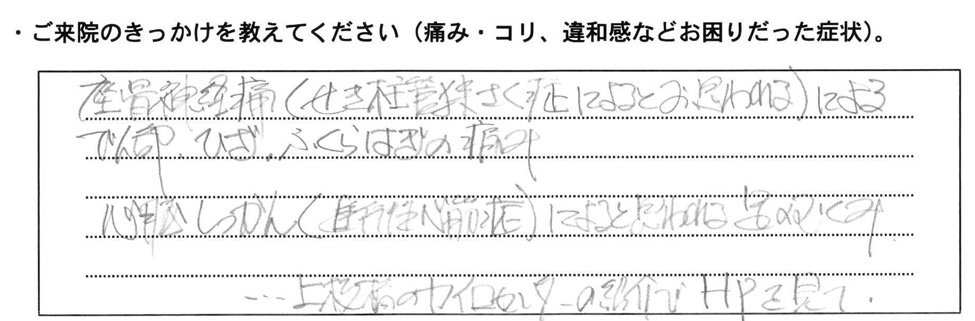 ・ご来院のきっかけを教えてください（痛み・コリ、違和感などお困りだった症状）。
座骨神経痛（せき柱管狭さく症によるとお思われる）による
でん部、ひざ、ふくらはぎの痛み
心臓しっかん（　　　　）によると思われる足のむくみ
…上板橋のカイロセンターの紹介でHPを見て.